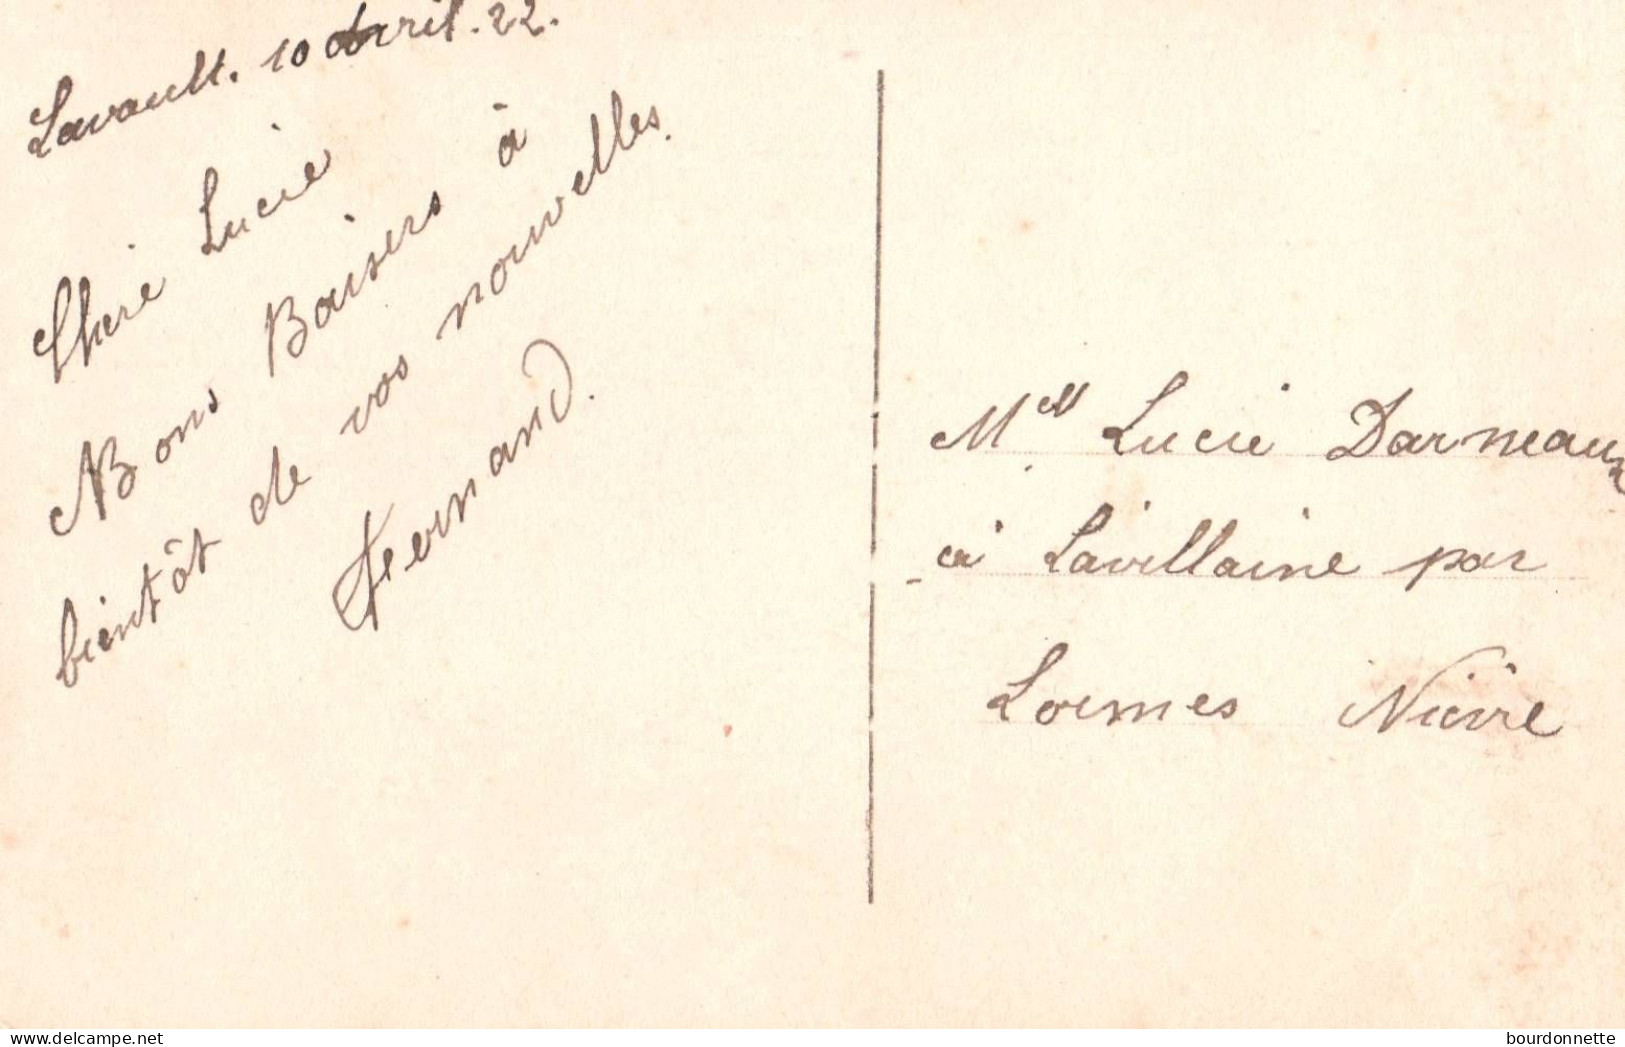 Lavault. 10 Avril. 22.
Chère Lucie
Bons Baisers à
bientôt de vos nouvelles.
Fernand.
Mell Lucie Darneaux
à Lavillaine par
Lormes Nièvre
www.delcampe.net
bourdonnette